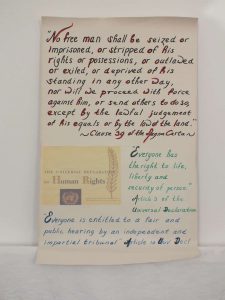 "No free man shall be seized or
imprisoned, or stripped of his
rights or possessions, or outlawed
or exiled, or deprived of his
standing in any other way,
nor will we proceed with force
against him, or send others to do so,
except by the lawful judgement
of his equals or by the law of the land."
~ Clause 39 of the Magna Carta ~
THE UNIVERSAL DECLARATION
OF Human Rights
"Everyone has
the right to life,
liberty and
security of person."
Article 3 of the
Universal Declaration
Everyone is entitled to a fair and
public hearing by an independent and
impartial tribunal Article 10 Decl.